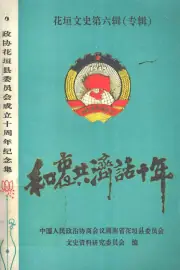 花垣文史第六辑(专辑)
和衷共濟話十年
中国人民政治协商会议湖南省花垣县委员会
文史资料研究委员会 编
政协花垣县委员会成立十周年纪念集